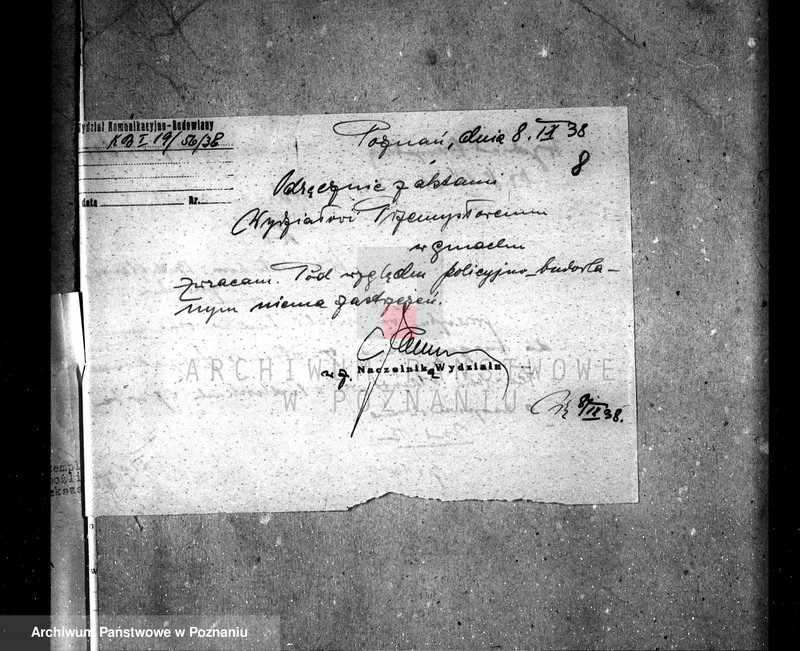 Wydział Komunikacyjno-Budowlany
KB I 19/56/38
data Nr.
Poznań, dnia 8. IX 38
8
Odręcznie z aktami
Wydziałowi Przemysłowemu
w gmachu
zwracam. Pod względem policyjno-budowla-
nym niema zastrzeżeń.
w z. Naczelnika Wydziału
8/IX 38.
ARCHIWUM PAŃSTWOWE
W POZNANIU
Archiwum Państwowe w Poznaniu